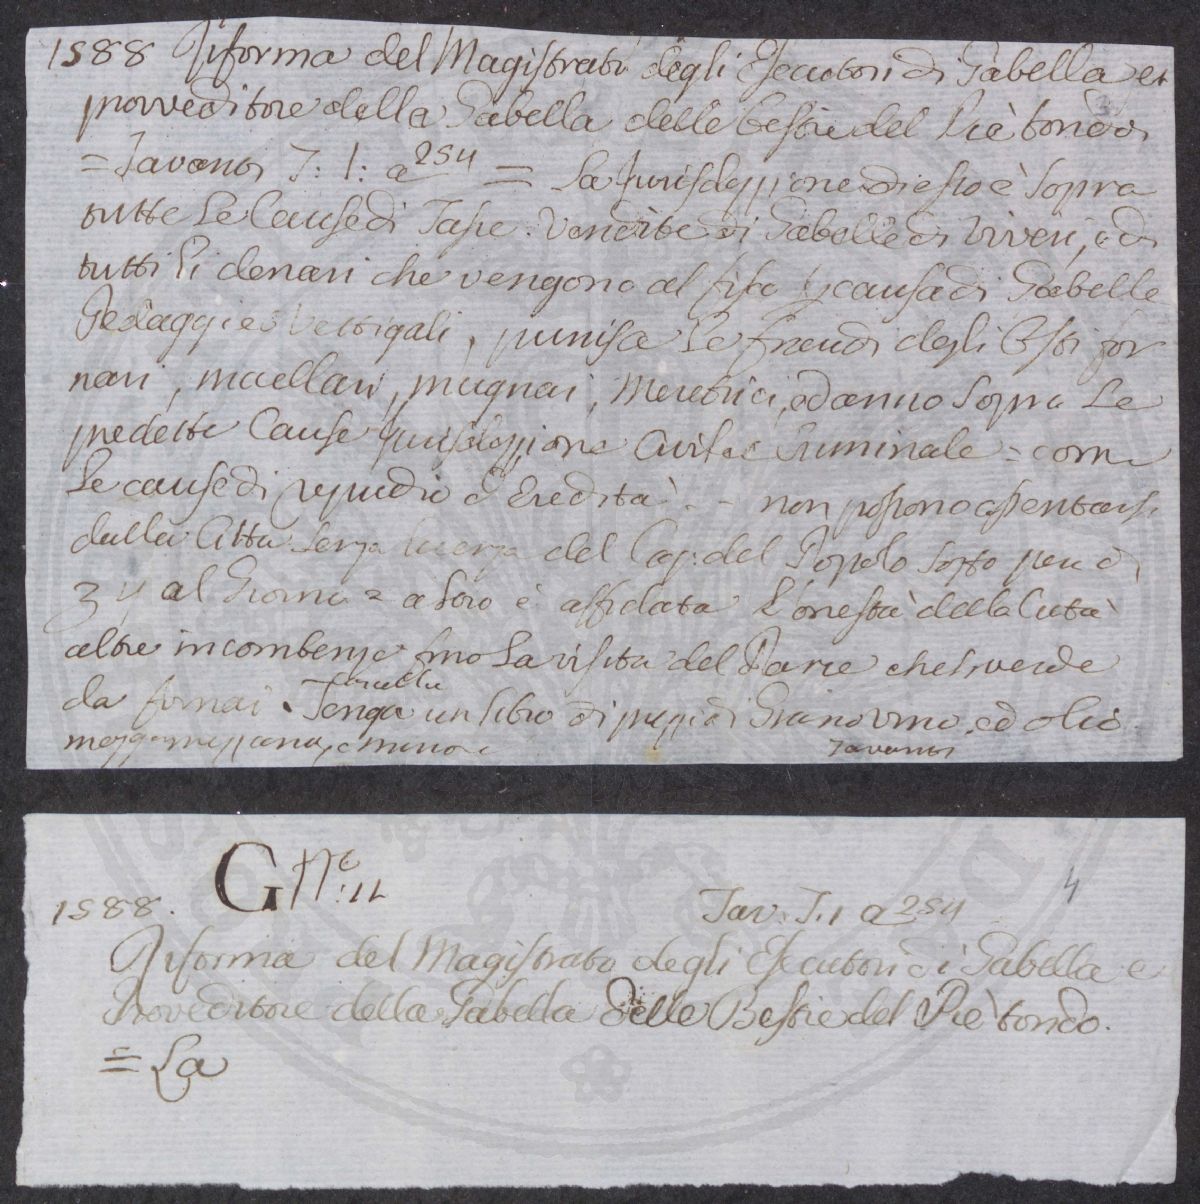 1588 Riforma del Magistrato degli Esecutori di Gabella et
provveditore della Gabella delle bestie del Piè tondo
= Tavanti T: 1: a 254 = La Jurisdizzione di esso è sopra
tutte Le Cause di Tasse. Vendite di Gabelle di Viveri, e di
tutti Li denari che vengono al fisco p causa di Gabelle
Pedaggi e Vettigali, punisce Le fraudi degli Osti for
nari, macellari, mugnai, Meretrici, ed anno sopra Le
predette Cause Jurisdizzione Civile e Criminale = come
Le cause di repudio d'Eredità. - non possono assentarsi
dalla Citta senza licenza del Cap: del Popolo sotto pena di
al Giorno = a loro è affidata L'onestà della Città
altre incombenze sono La visita del Pane che si vende
da fornai. Tenga un libro di prezzi di Grano vino, ed olio
Tavanti
4
G N.º: 11
1588. Tav. T. 1 a 254
Riforma del Magistrato degli Esecutori di Gabella e
Proveditore della Gabella delle Bestie del Piè tondo.
= La